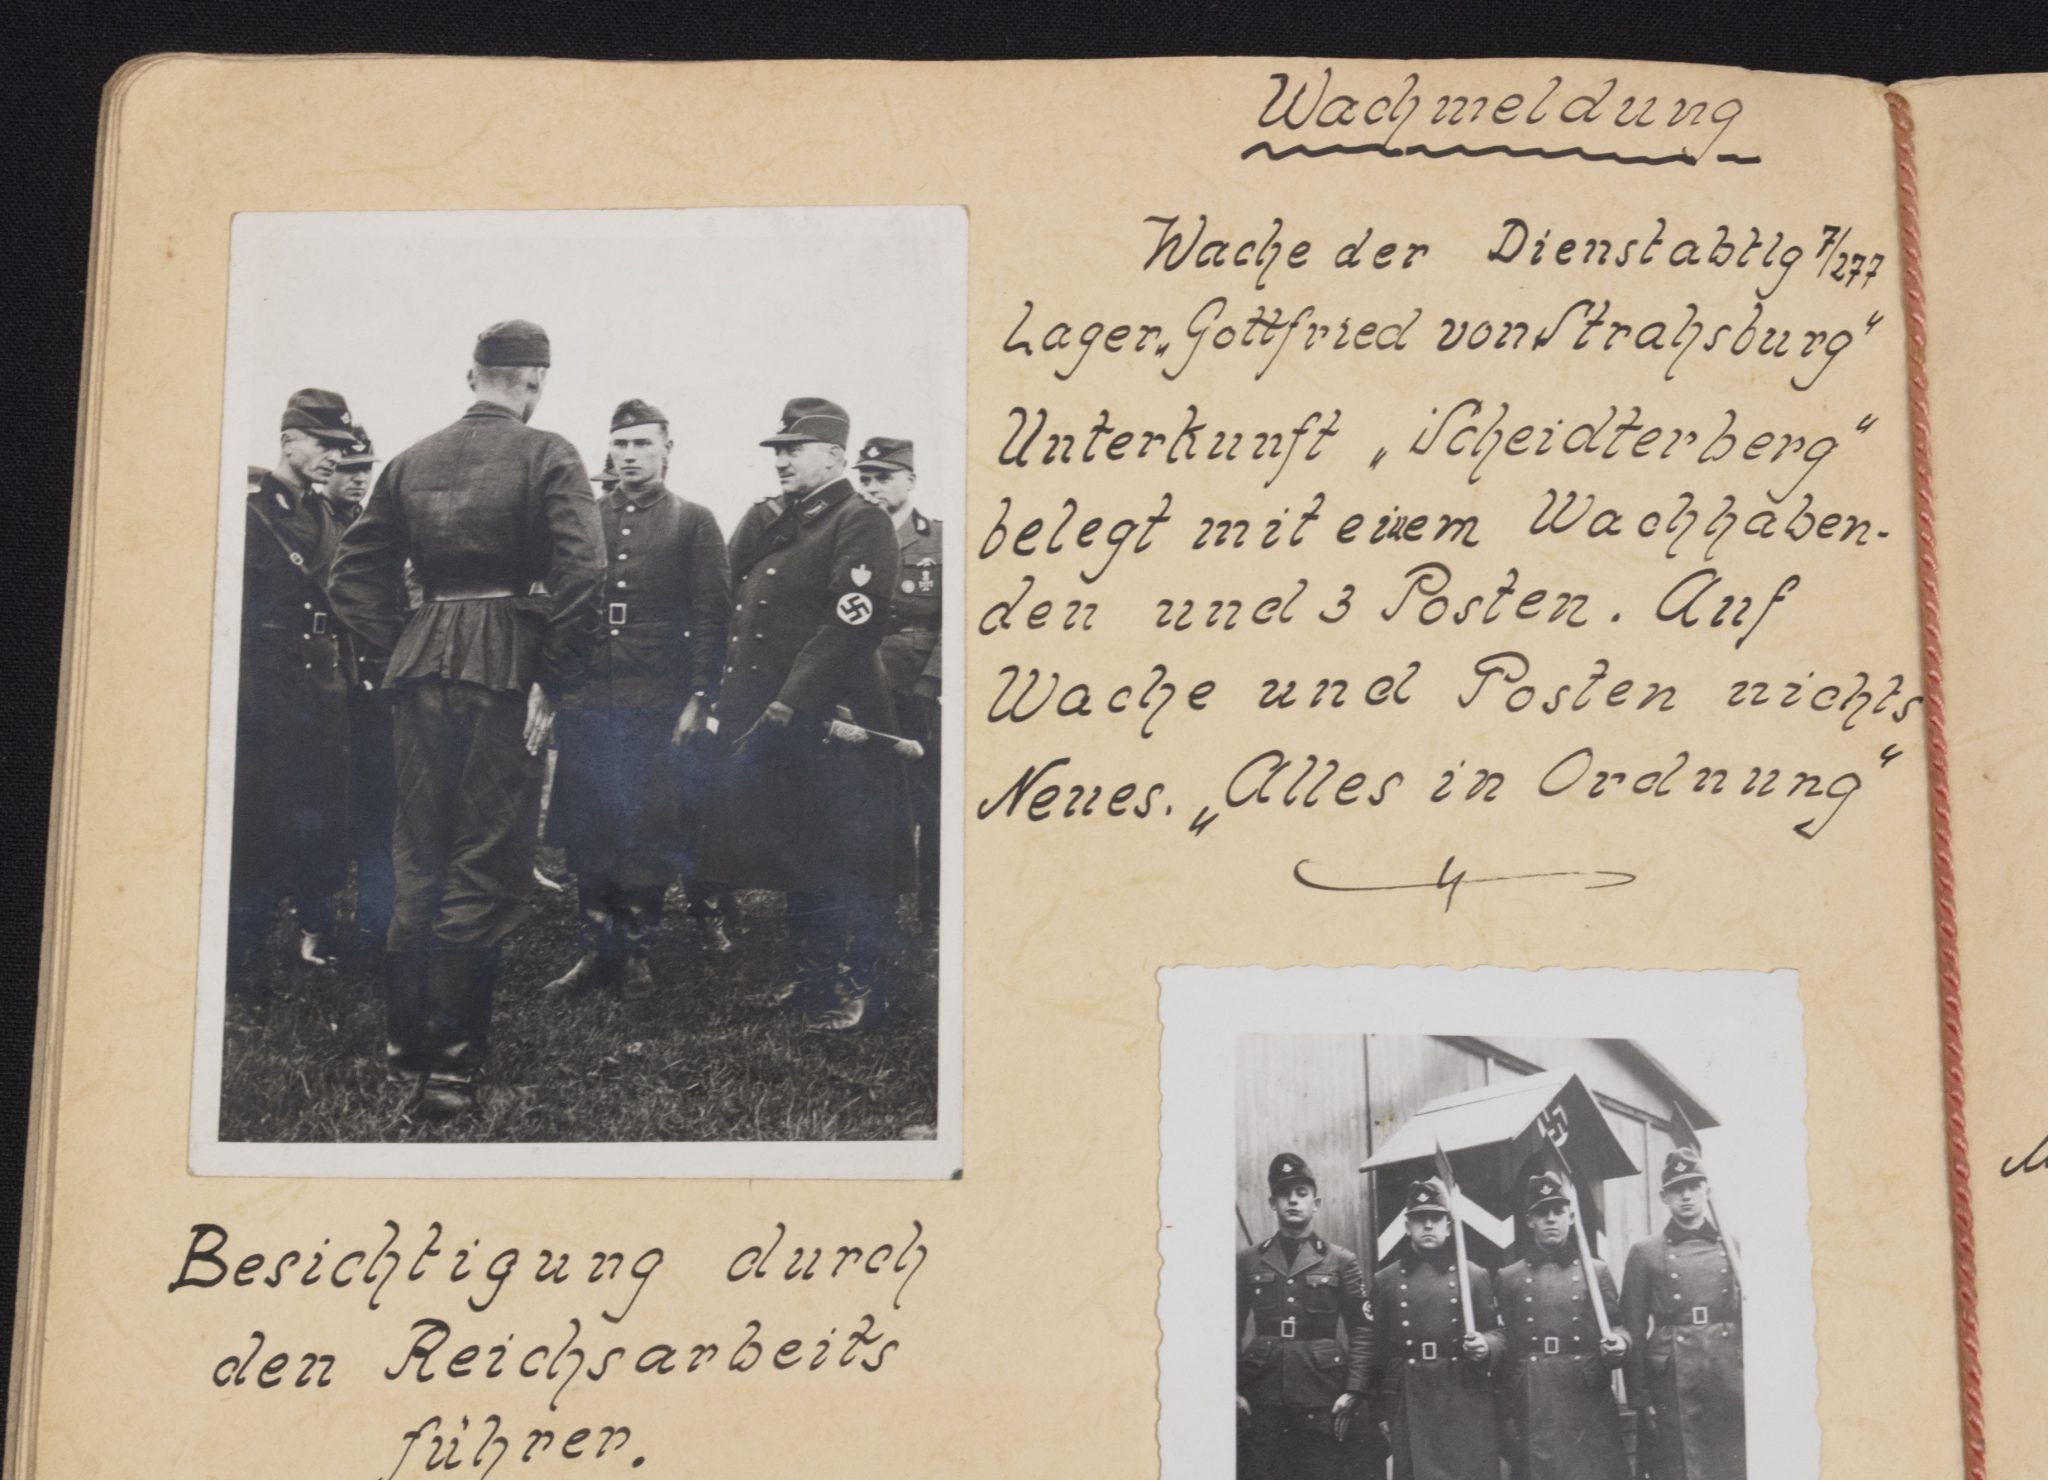 Wachmeldung
Wache der Dienstabtlg 7/277
Lager „Gottfried von Strahsburg"
Unterkunft „Scheidterberg"
belegt mit einem Wachhaben-
den und 3 Posten. Auf
Wache und Posten nichts
Neues. „Alles in Ordnung"
Besichtigung durch
den Reichsarbeits
führer.